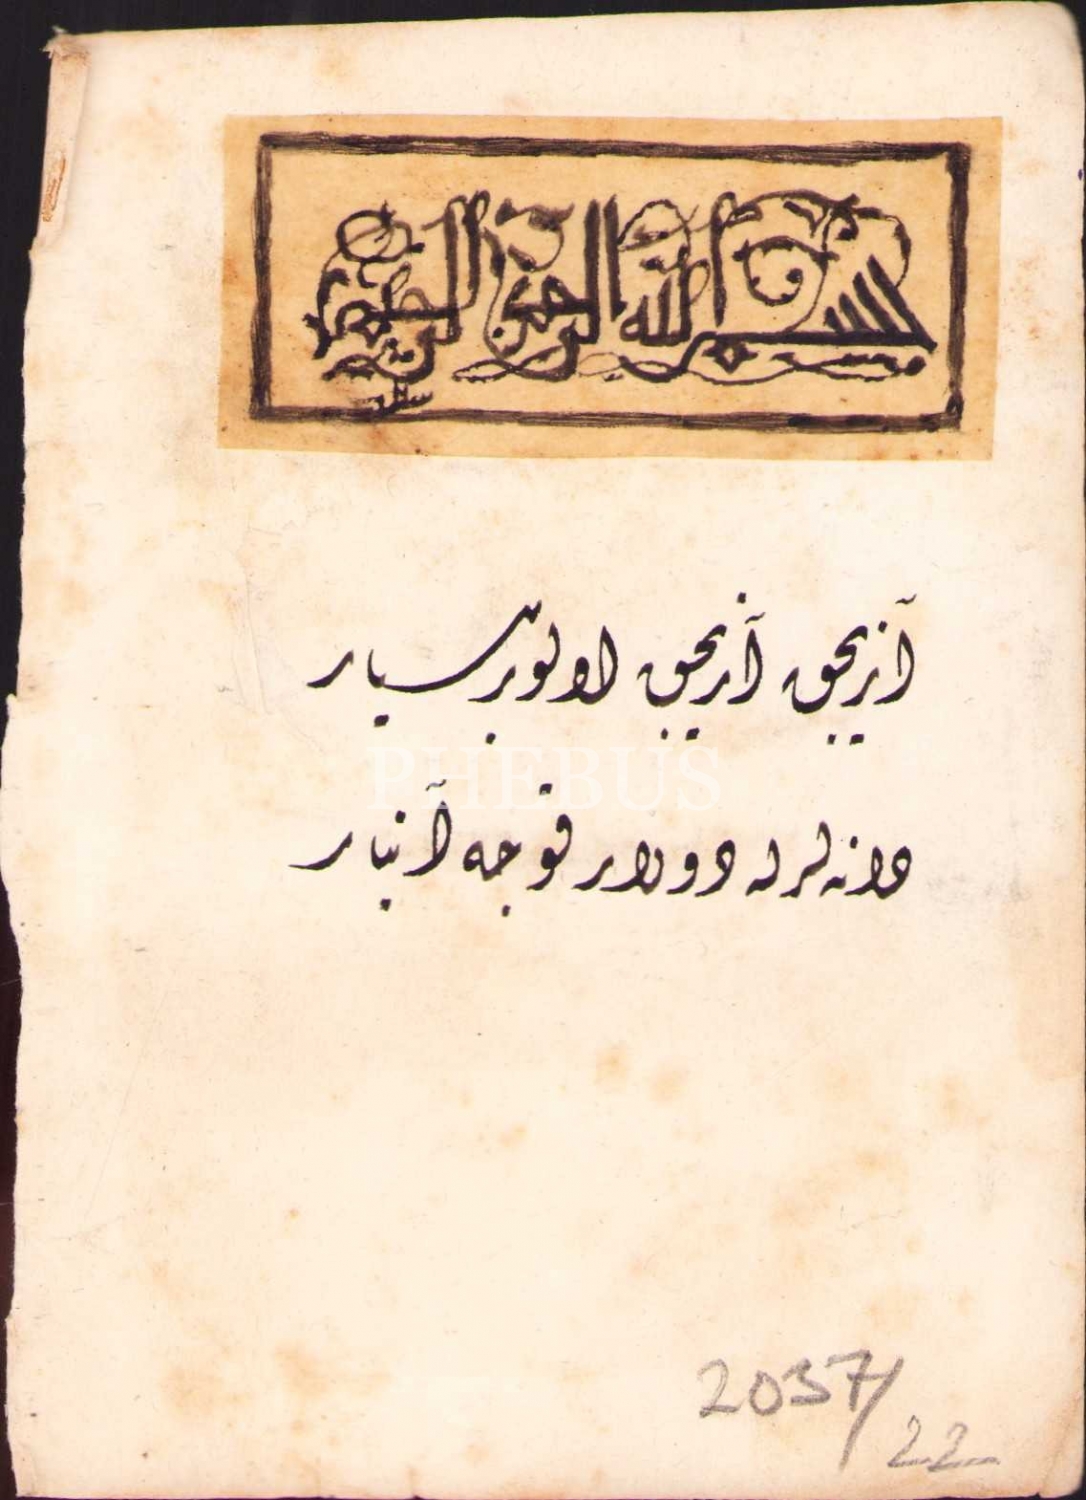 بسم الله الرحمن الرحيم
آزیجق آزیجق اولور بسیار
PHEBUS
دانه لرله دولار قوجه آنبار
2037/22